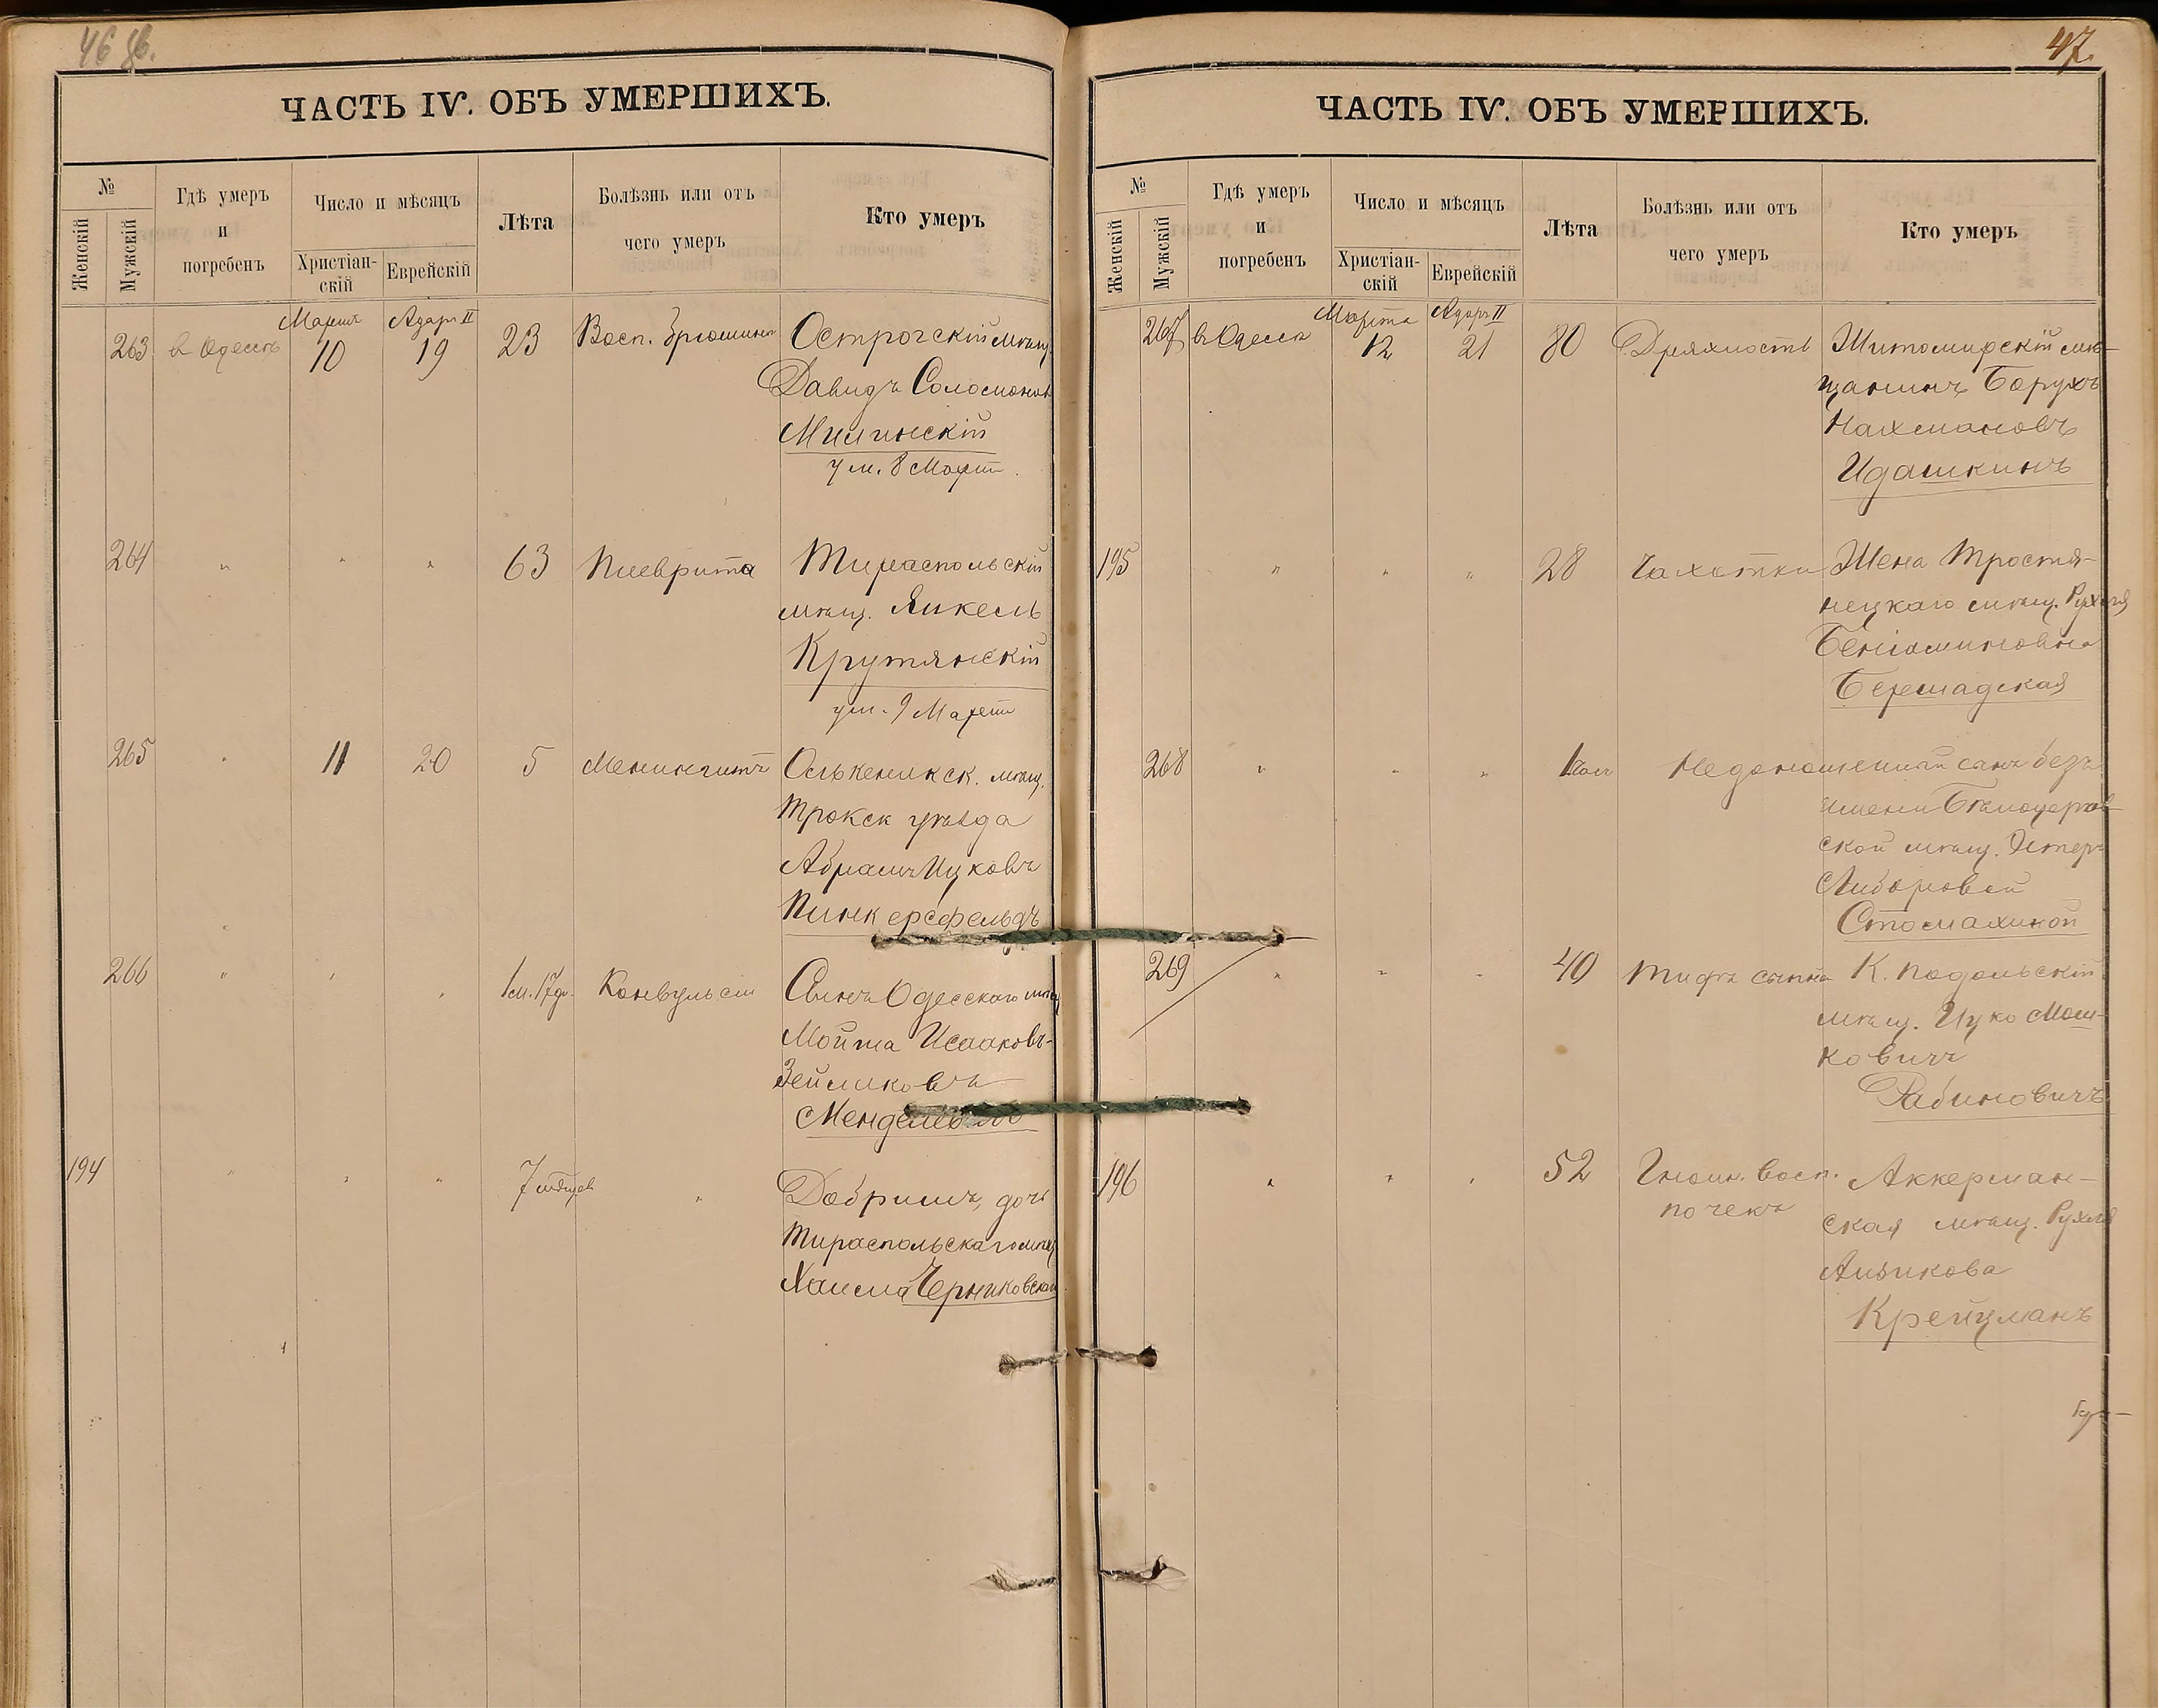 46 об.
ЧАСТЬ IV. ОБЪ УМЕРШИХЪ.
№
Женскій
Мужскій
Гдѣ умеръ
и
погребенъ
Число и мѣсяцъ
Христіан-
скій
Еврейскій
Лѣта
Болѣзнь или отъ
чего умеръ
Кто умеръ
Марта Адаръ II
263 в Одессѣ 10 19 23 Восп. брюшины Острогскій мѣщ.
Давидъ Соломоновъ
Милинскій
ум. 8 Марта
264 " " " 63 Плеврита Тираспольскій
мѣщ. Янкель
Крутянскій
ум. 9 Марта
265 " 11 20 5 Менингитъ Олькеникск. мѣщ.
Трокск уѣзда
Абрамъ Ицковъ
Пинкерсфельдъ
266 " " " 1 м. 17 дн. Конвульсіи Сынъ Одесскаго мѣщ
Мойша Исааковъ-
Зейликовъ
194 " " " 7 мѣсяцев " Добришъ, дочь
Тираспольскаго мѣщ
Хаима Черниковскаго
47
ЧАСТЬ IV. ОБЪ УМЕРШИХЪ.
№
Женскій
Мужскій
Гдѣ умеръ
и
погребенъ
Число и мѣсяцъ
Христіан-
скій
Еврейскій
Лѣта
Болѣзнь или отъ
чего умеръ
Кто умеръ
Марта Адаръ II
267 в Одессѣ 12 21 80 Дряхлость Житомирскій мѣ-
щанинъ Борухъ
Нахмановъ
Идашкинъ
195 " " " 28 Чахотки Жена Тростя-
нецкаго мѣщ. Рухля
Беніаминовна
Бершадская
268 " " " 1 час Недоношенный сынъ безъ
имени Бѣлоцерков-
ской мѣщ. Эстеръ
Либоровой
Стомахиной
269 " " " 40 Тифъ сыпн. К. Подольскій
мѣщ. Ицко Мош-
ковичъ
Рабиновичъ
196 " " " 52 Гнойн. восп. Аккерман-
почекъ ская мѣщ. Рухля
Аизикова
Крейцманъ